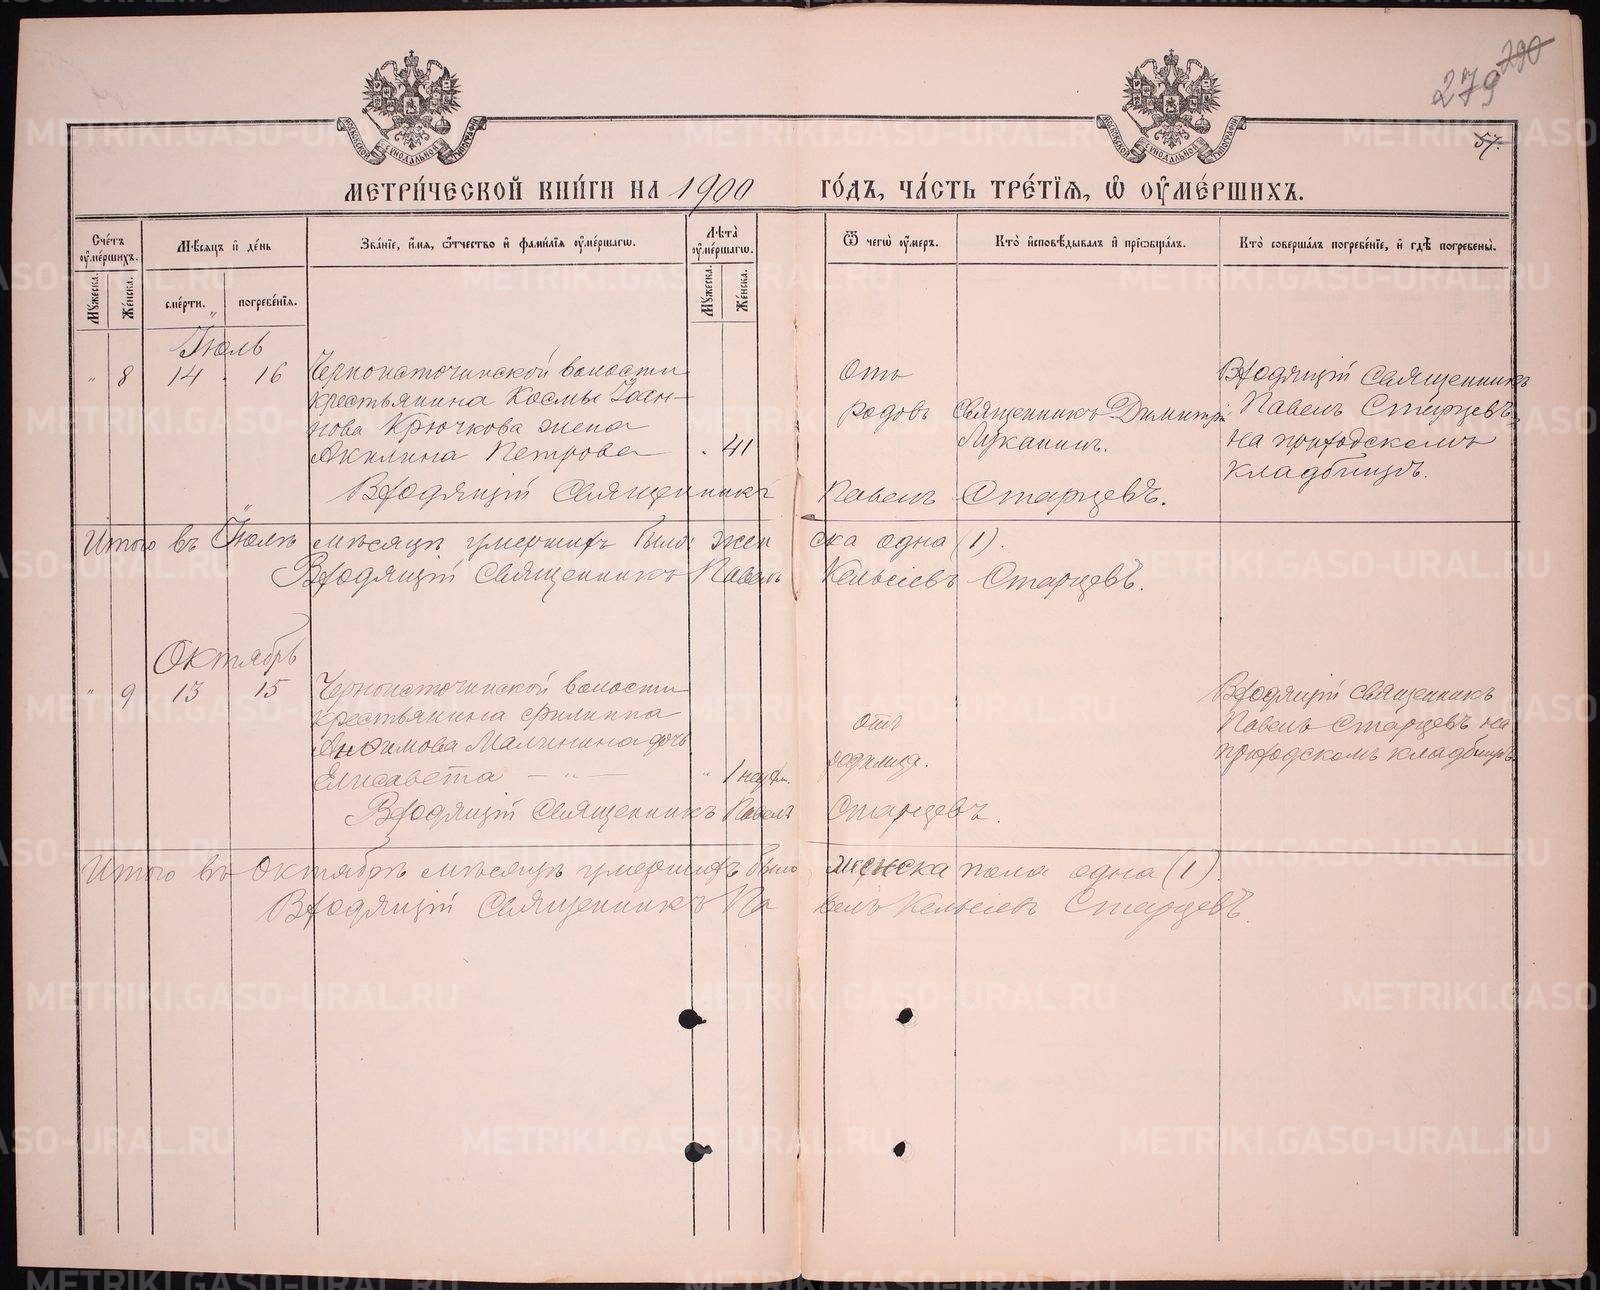 290
279
57.
МЕТРИ́ЧЕСКОЙ КНИ́ГИ НА 1900 ГО́ДЪ, ЧА́СТЬ ТРЕ́ТІѦ, Ѡ ОУ҆МЕ́РШИХЪ.
Сче́тъ оу҆ме́ршихъ.
Мꙋ́жеска.
Же́нска.
Мѣ́сяцъ и҆ де́нь
сме́рти.
погребе́нїѧ.
Зва́нїе, и҆́мѧ, ѻ҆́тчество и҆ фами́лїѧ оу҆ме́ршагѡ.
Лѣ́та оу҆ме́ршагѡ.
Мꙋ́жеска.
Же́нска.
Ѿ чегѡ̀ оу҆́меръ.
Кто̀ и҆сповѣ́дывалъ и҆ прїѡбща́лъ.
Кто̀ соверша́лъ погребе́нїе, и҆ гдѣ̀ погребены̀.
Іюль
" 8 14 16 Черноисточинской волости
крестьянина Космы Іоан-
нова Крючкова жена
Акилина Петрова 41
Отъ
родовъ
Священникъ Димитрій
Луканинъ.
Входящій священникъ
Павелъ Старцевъ
на приходскомъ
кладбищѣ.
Входящій Священникъ Павелъ Старцевъ.
Итого въ Іюлѣ мѣсяцѣ умершихъ было: женска одна (1).
Входящій Священникъ Павелъ Кельсіевъ Старцевъ.
Октябрь
" 9 13 15 Черноисточинской волости
крестьянина Филиппа
Анфимова Малинина дочь
Елисавета — " — " 1 нед.
отъ
родимца.
Входящій священникъ
Павелъ Старцевъ на
приходскомъ кладбищѣ.
Входящій Священникъ Павелъ Старцевъ.
Итого въ Октябрѣ мѣсяцѣ умершихъ было женска пола одна (1).
Входящій Священникъ Павелъ Кельсіевъ Старцевъ.
METRIKI.GASO-URAL.RU